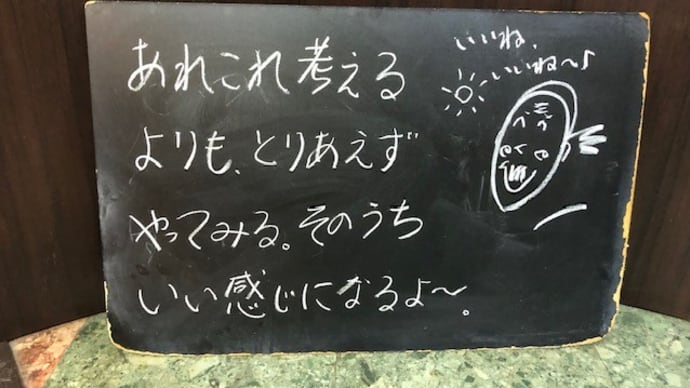 あれこれ考える
よりも、とりあえず
やってみる。そのうち
いい感じになるよ〜。
いいね、
いいね〜♪